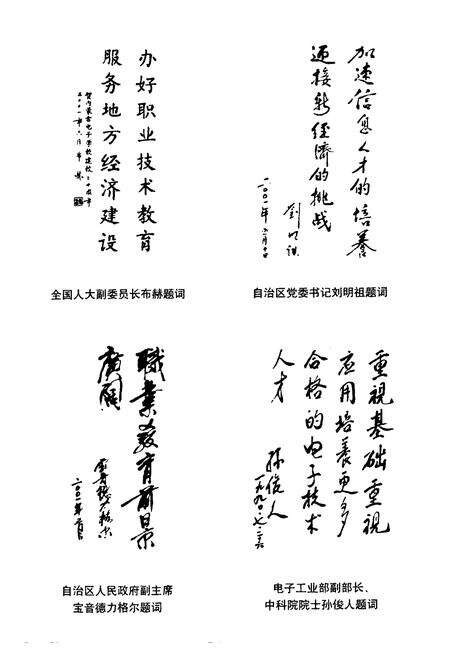 办好职业技术教育
服务地方经济建设
贺内蒙古电子学校建校二十周年
二〇〇一年六月 布赫
全国人大副委员长布赫题词
加速信息人才的培养
迎接新经济的挑战
二〇〇一年六月十日
刘明祖
自治区党委书记刘明祖题词
職業教育前景
廣阔
宝音德力格尔
二〇〇一年六月
自治区人民政府副主席
宝音德力格尔题词
重视基础重视
应用培养更多
合格的电子技术
人才
孙俊人
一九九〇·七·二六
电子工业部副部长、
中科院院士孙俊人题词